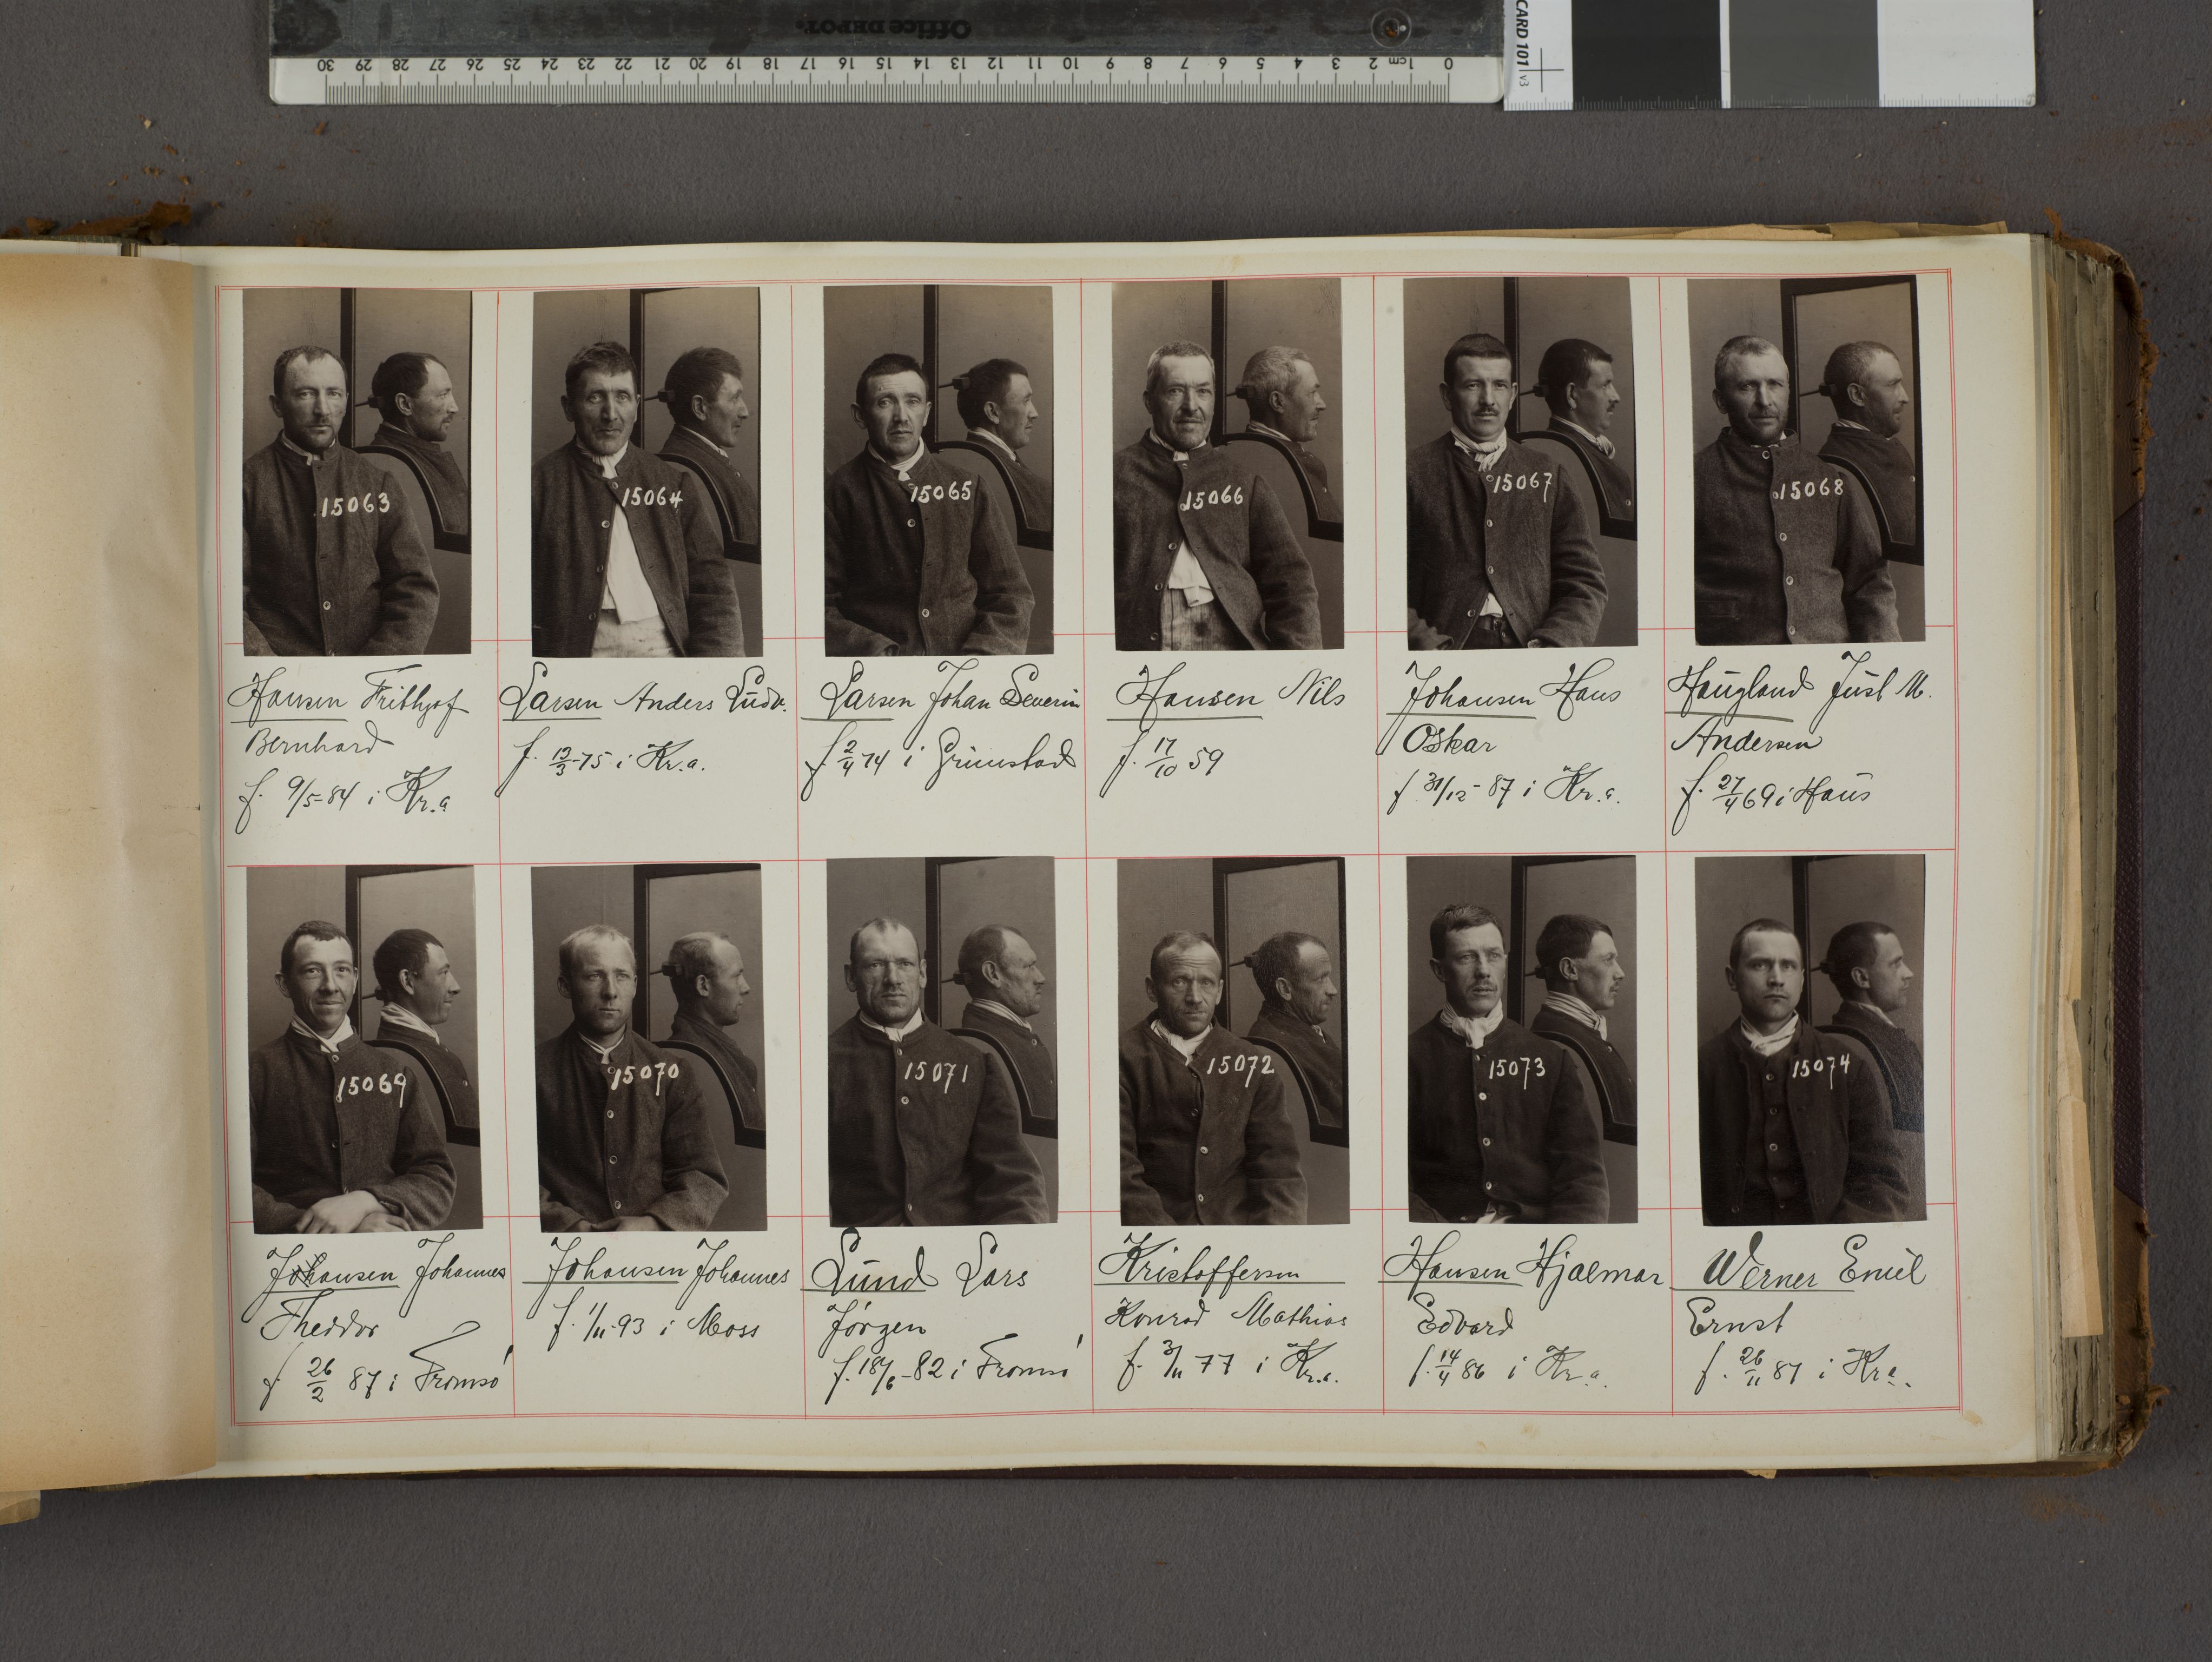 Office DEPOT.
30 29 28 27 26 25 24 23 22 21 20 19 18 17 16 15 14 13 12 11 10 9 8 7 6 5 4 3 2 1cm 0
CARD 101 v3
15063
15064
15065
15066
15067
15068
Hansen Frithjof
Bernhard
f. 9/5-84 i Kr.a
Larsen Anders Ludv.
f. 13/3-75 i Kr.a.
Larsen Johan Severin
f. 2/4 74 i Grimstad
Hansen Nils
f. 17/10 59
Johansen Hans
Oskar
f 31/12-87 i Kr.a.
Haugland Just M.
Andersen
f. 27/4 69 i Haus
15069
15070
15071
15072
15073
15074
Johansen Johannes
Theodor
f 26/2 87 i Tromsö
Johansen Johannes
f. 1/11-93 i Moss
Lund Lars
Jörgen
f. 18/6-82 i Tromsö
Kristoffersen
Konrad Mathias
f. 3/11 77 i Kr.a.
Hansen Hjalmar
Edvard
f. 14/4 86 i Kr.a.
Werner Emil
Ernst
f. 26/11 87 i Kr.a.